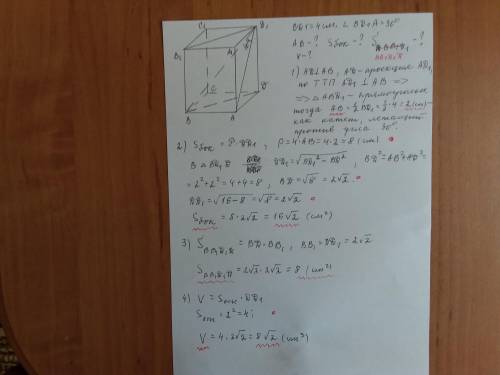 C₁ D₁
B₁ A₁
C D
B A
BD₁ = 4 см, ∠ BD₁A = 30°
AB - ? Sбок - ? S BB₁D₁D - ?
V - ?
1) AD⊥AB, AD - проекция AD₁
по ТТП AD₁ ⊥ AB =>
=> △ABD₁ - прямоугольн
тогда AB = ½ BD₁ = ½ · 4 = 2 (см) -
как катет, лежащий
против угла 30°.
2) Sбок = P · DD₁, P = 4 · AB = 4 · 2 = 8 (см)
В △ BD₁D DD₁ = √BD₁² − BD², BD² = AB² + AD² =
= 2² + 2² = 4 + 4 = 8, BD = √8 = 2√2
DD₁ = √16 − 8 = √8 = 2√2
Sбок = 8 · 2√2 = 16√2 (см²)
3) S BB₁D₁D = BD · BB₁, BB₁ = DD₁ = 2√2
S BB₁D₁D = 2√2 · 2√2 = 8 (см²)
4) V = Sосн · DD₁
Sосн = 2² = 4;
V = 4 · 2√2 = 8√2 (см³)